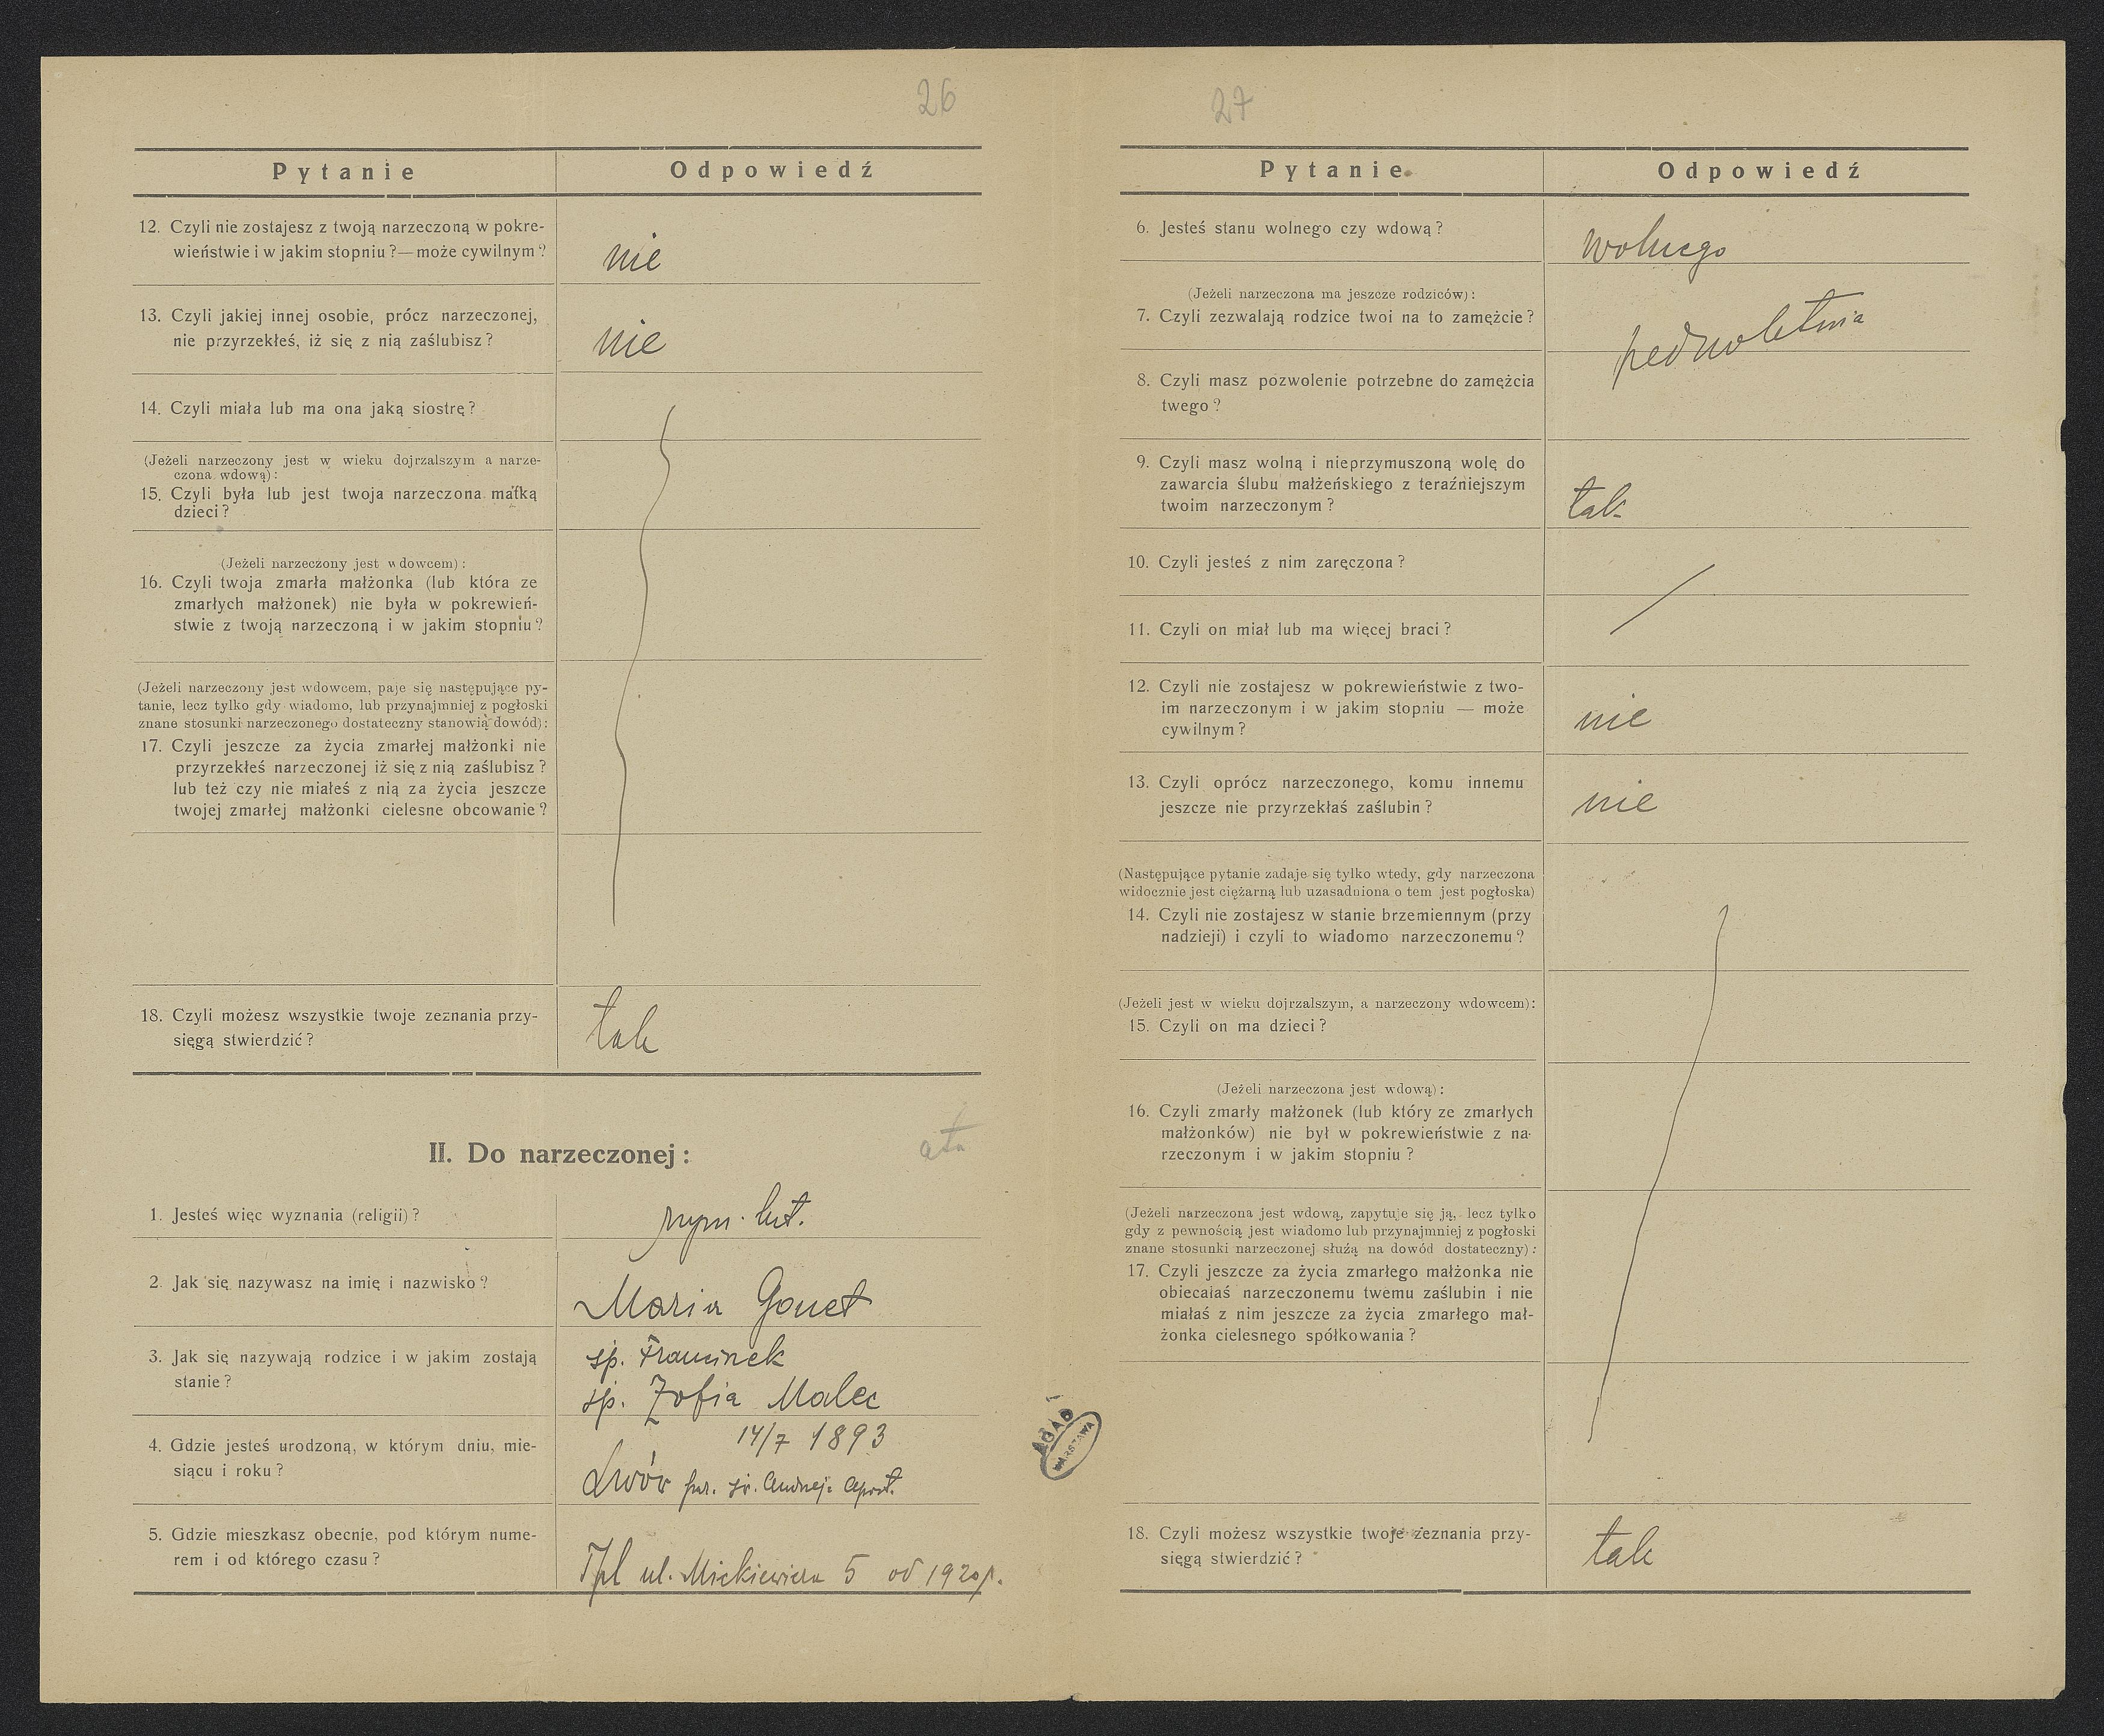 26
Pytanie
Odpowiedź
12. Czyli nie zostajesz z twoją narzeczoną w pokre-
wieństwie i w jakim stopniu?—może cywilnym?
nie
13. Czyli jakiej innej osobie, prócz narzeczonej,
nie przyrzekłeś, iż się z nią zaślubisz?
nie
14. Czyli miała lub ma ona jaką siostrę?
(Jeżeli narzeczony jest w wieku dojrzalszym a narze-
czona wdową):
15. Czyli była lub jest twoja narzeczona matką
dzieci?
(Jeżeli narzeczony jest wdowcem):
16. Czyli twoja zmarła małżonka (lub która ze
zmarłych małżonek) nie była w pokrewień-
stwie z twoją narzeczoną i w jakim stopniu?
(Jeżeli narzeczony jest wdowcem, paje się następujące py-
tanie, lecz tylko gdy wiadomo, lub przynajmniej z pogłoski
znane stosunki narzeczonego dostateczny stanowią dowód):
17. Czyli jeszcze za życia zmarłej małżonki nie
przyrzekłeś narzeczonej iż się z nią zaślubisz?
lub też czy nie miałeś z nią za życia jeszcze
twojej zmarłej małżonki cielesne obcowanie?
18. Czyli możesz wszystkie twoje zeznania przy-
sięgą stwierdzić?
tak
II. Do narzeczonej:
1. Jesteś więc wyznania (religii)?
rzym. łat.
2. Jak się nazywasz na imię i nazwisko?
Maria Gonet
3. Jak się nazywają rodzice i w jakim zostają
stanie?
śp. Franciszek
śp. Zofia Malec
4. Gdzie jesteś urodzoną, w którym dniu, mie-
siącu i roku?
14/7 1893
Lwów par. św. Andrzeja Apost.
5. Gdzie mieszkasz obecnie, pod którym nume-
rem i od którego czasu?
Tpl ul. Mickiewicza 5 od 1920 r.
AGAD
WARSZAWA
27
Pytanie
Odpowiedź
6. Jesteś stanu wolnego czy wdową?
wolnego
(Jeżeli narzeczona ma jeszcze rodziców):
7. Czyli zezwalają rodzice twoi na to zamężcie?
pełnoletnia
8. Czyli masz pozwolenie potrzebne do zamężcia
twego?
9. Czyli masz wolną i nieprzymuszoną wolę do
zawarcia ślubu małżeńskiego z teraźniejszym
twoim narzeczonym?
tak
10. Czyli jesteś z nim zaręczona?
11. Czyli on miał lub ma więcej braci?
12. Czyli nie zostajesz w pokrewieństwie z two-
im narzeczonym i w jakim stopniu — może
cywilnym?
nie
13. Czyli oprócz narzeczonego, komu innemu
jeszcze nie przyrzekłaś zaślubin?
nie
(Następujące pytanie zadaje się tylko wtedy, gdy narzeczona
widocznie jest ciężarną lub uzasadniona o tem jest pogłoska)
14. Czyli nie zostajesz w stanie brzemiennym (przy
nadzieji) i czyli to wiadomo narzeczonemu?
(Jeżeli jest w wieku dojrzalszym, a narzeczony wdowcem):
15. Czyli on ma dzieci?
(Jeżeli narzeczona jest wdową):
16. Czyli zmarły małżonek (lub który ze zmarłych
małżonków) nie był w pokrewieństwie z na-
rzeczonym i w jakim stopniu?
(Jeżeli narzeczona jest wdową, zapytuje się ją, lecz tylko
gdy z pewnością jest wiadomo lub przynajmniej z pogłoski
znane stosunki narzeczonej służą na dowód dostateczny):
17. Czyli jeszcze za życia zmarłego małżonka nie
obiecałaś narzeczonemu twemu zaślubin i nie
miałaś z nim jeszcze za życia zmarłego mał-
żonka cielesnego spółkowania?
18. Czyli możesz wszystkie twoje zeznania przy-
sięgą stwierdzić?
tak